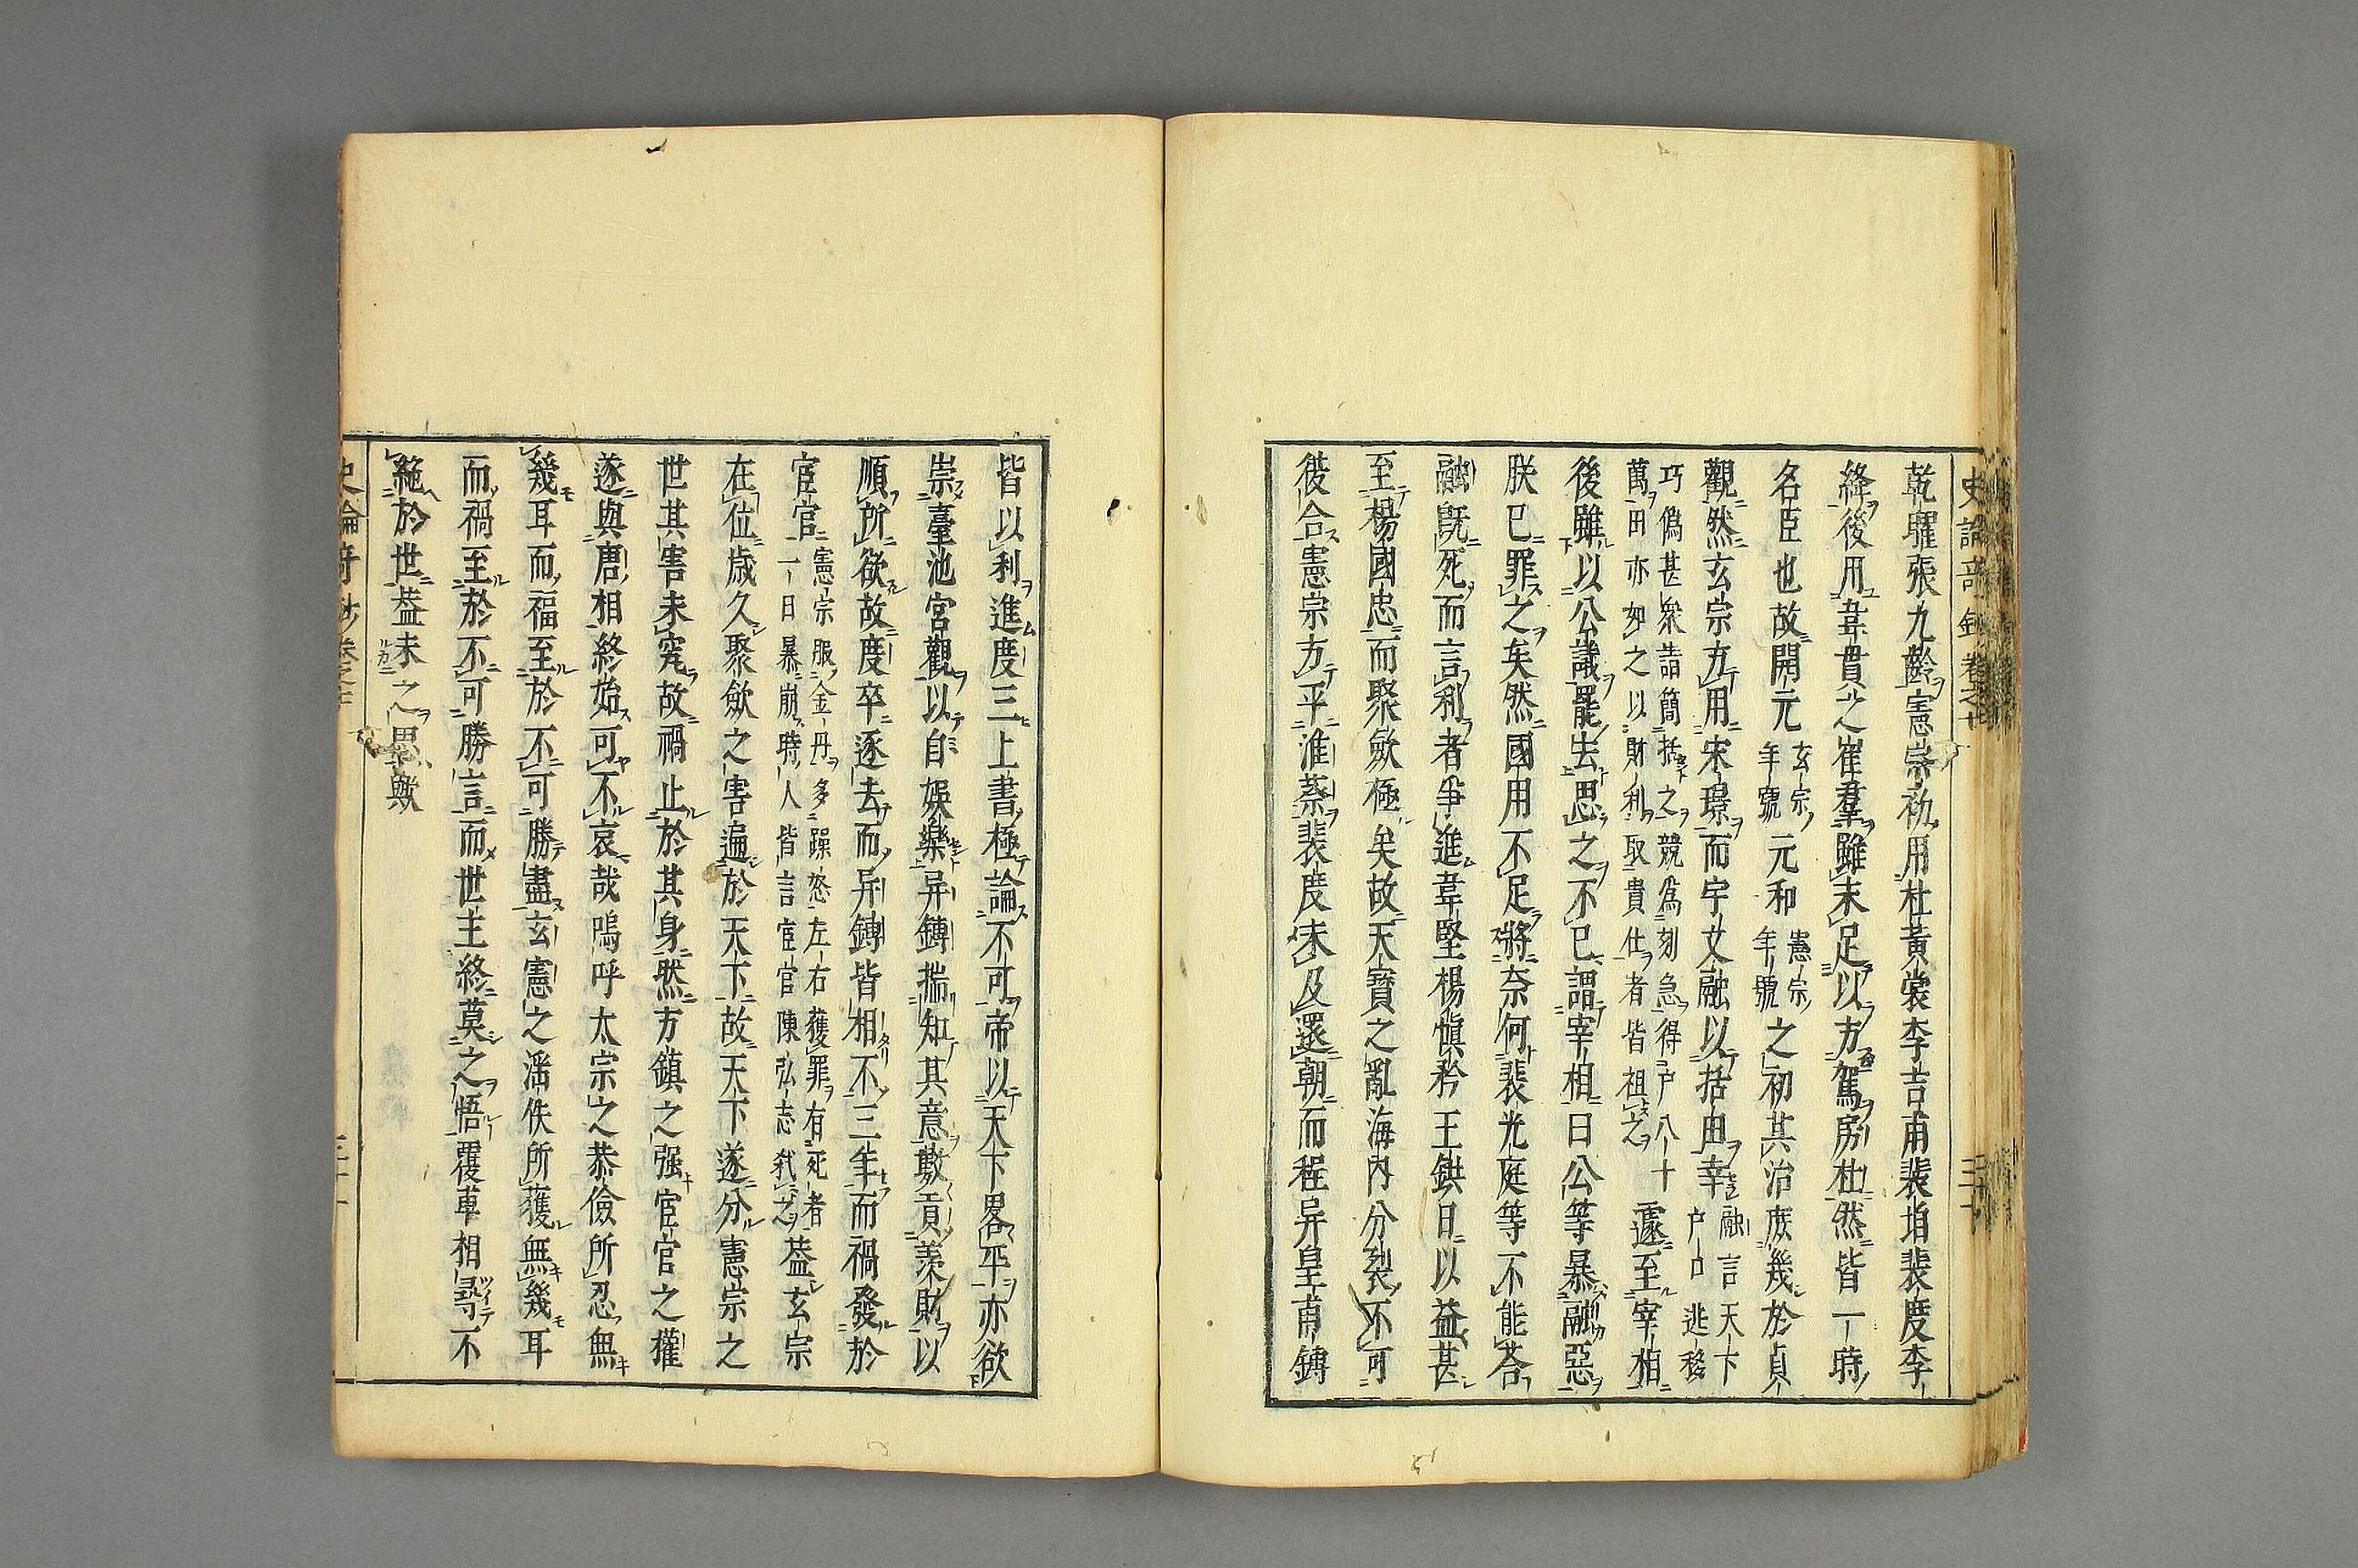 乾曜張九齡憲宗初用杜黃裳李吉甫裴垍裴度李
絳後用韋貫之崔羣雖未足以方駕房杜然皆一時
名臣也故開元玄宗年號元和憲宗年號之初其治庶幾於貞
觀然玄宗方用宋璟而宇文融以括田幸融言天下戶口逃移
巧僞甚衆請簡括之競爲刻急得戶八十萬田亦如之以財利取貴仕者皆祖之遽至宰相
後雖以公議罷去思之不已謂宰相曰公等暴融惡
朕已罪之矣然國用不足將奈何裴光庭等不能荅
融旣死而言利者爭進韋堅楊愼矜王鉷日以益甚
至楊國忠而聚斂極矣故天寳之亂海內分裂不可
復合憲宗方平淮蔡裴度未及還朝而程异皇甫鎛
皆以利進度三上書極論不可帝以天下畧平亦欲
崇臺池宮觀以自娛樂异鎛揣知其意數貢羨財以
順所欲故度卒逐去而异鎛皆相不三年而禍發於
宦官憲宗服金丹多躁怒左右獲罪有死者一日暴崩時人皆言宦官陳弘志弒之葢玄宗
在位歲久聚斂之害遍於天下故天下遂分憲宗之
世其害未究故禍止於其身然方鎮之强宦官之權
遂與唐相終始可不哀哉嗚呼太宗之恭儉所忍無
幾耳而福至於不可勝盡玄憲之滛佚所獲無幾耳
而禍至於不可勝言而世主終莫之悟覆車相尋不
絶於世葢未之思歟
史論奇鈔卷之十